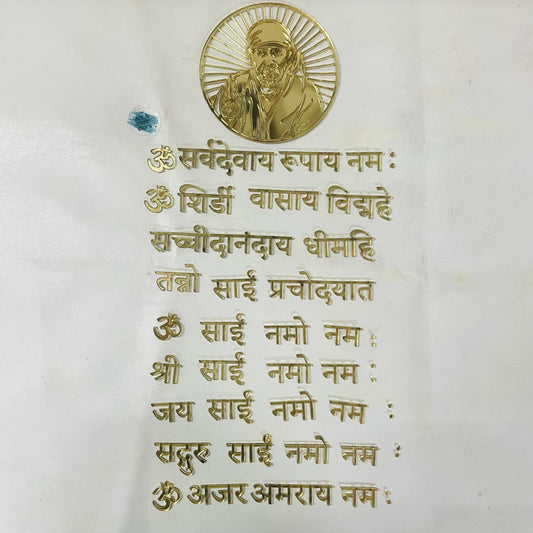 ॐ सर्वदेवाय रूपाय नमः
ॐ शिर्डी वासाय विद्महे
सच्चीदानंदाय धीमहि
तन्नो साईं प्रचोदयात
ॐ साईं नमो नमः
श्री साईं नमो नमः
जय साईं नमो नमः
सद्गुरु साईं नमो नमः
ॐ अजर अमराय नमः